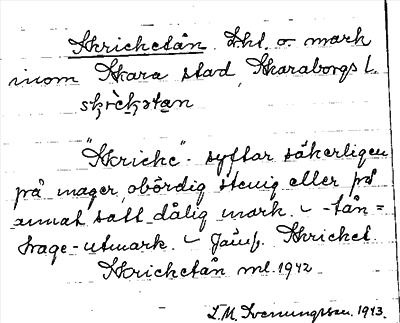 Skricketån. Lht. o. mark
inom Skara stad, Skaraborgs l.
skrìck̥ətan
"Skricke"- syftar säkerligen
på mager, obördig stenig eller på
annat sätt dålig mark. - -tån =
hage - utmark. - Jämf. Skricket
Skricketån ml. 1942
L.M. Svenungsson. 1943.